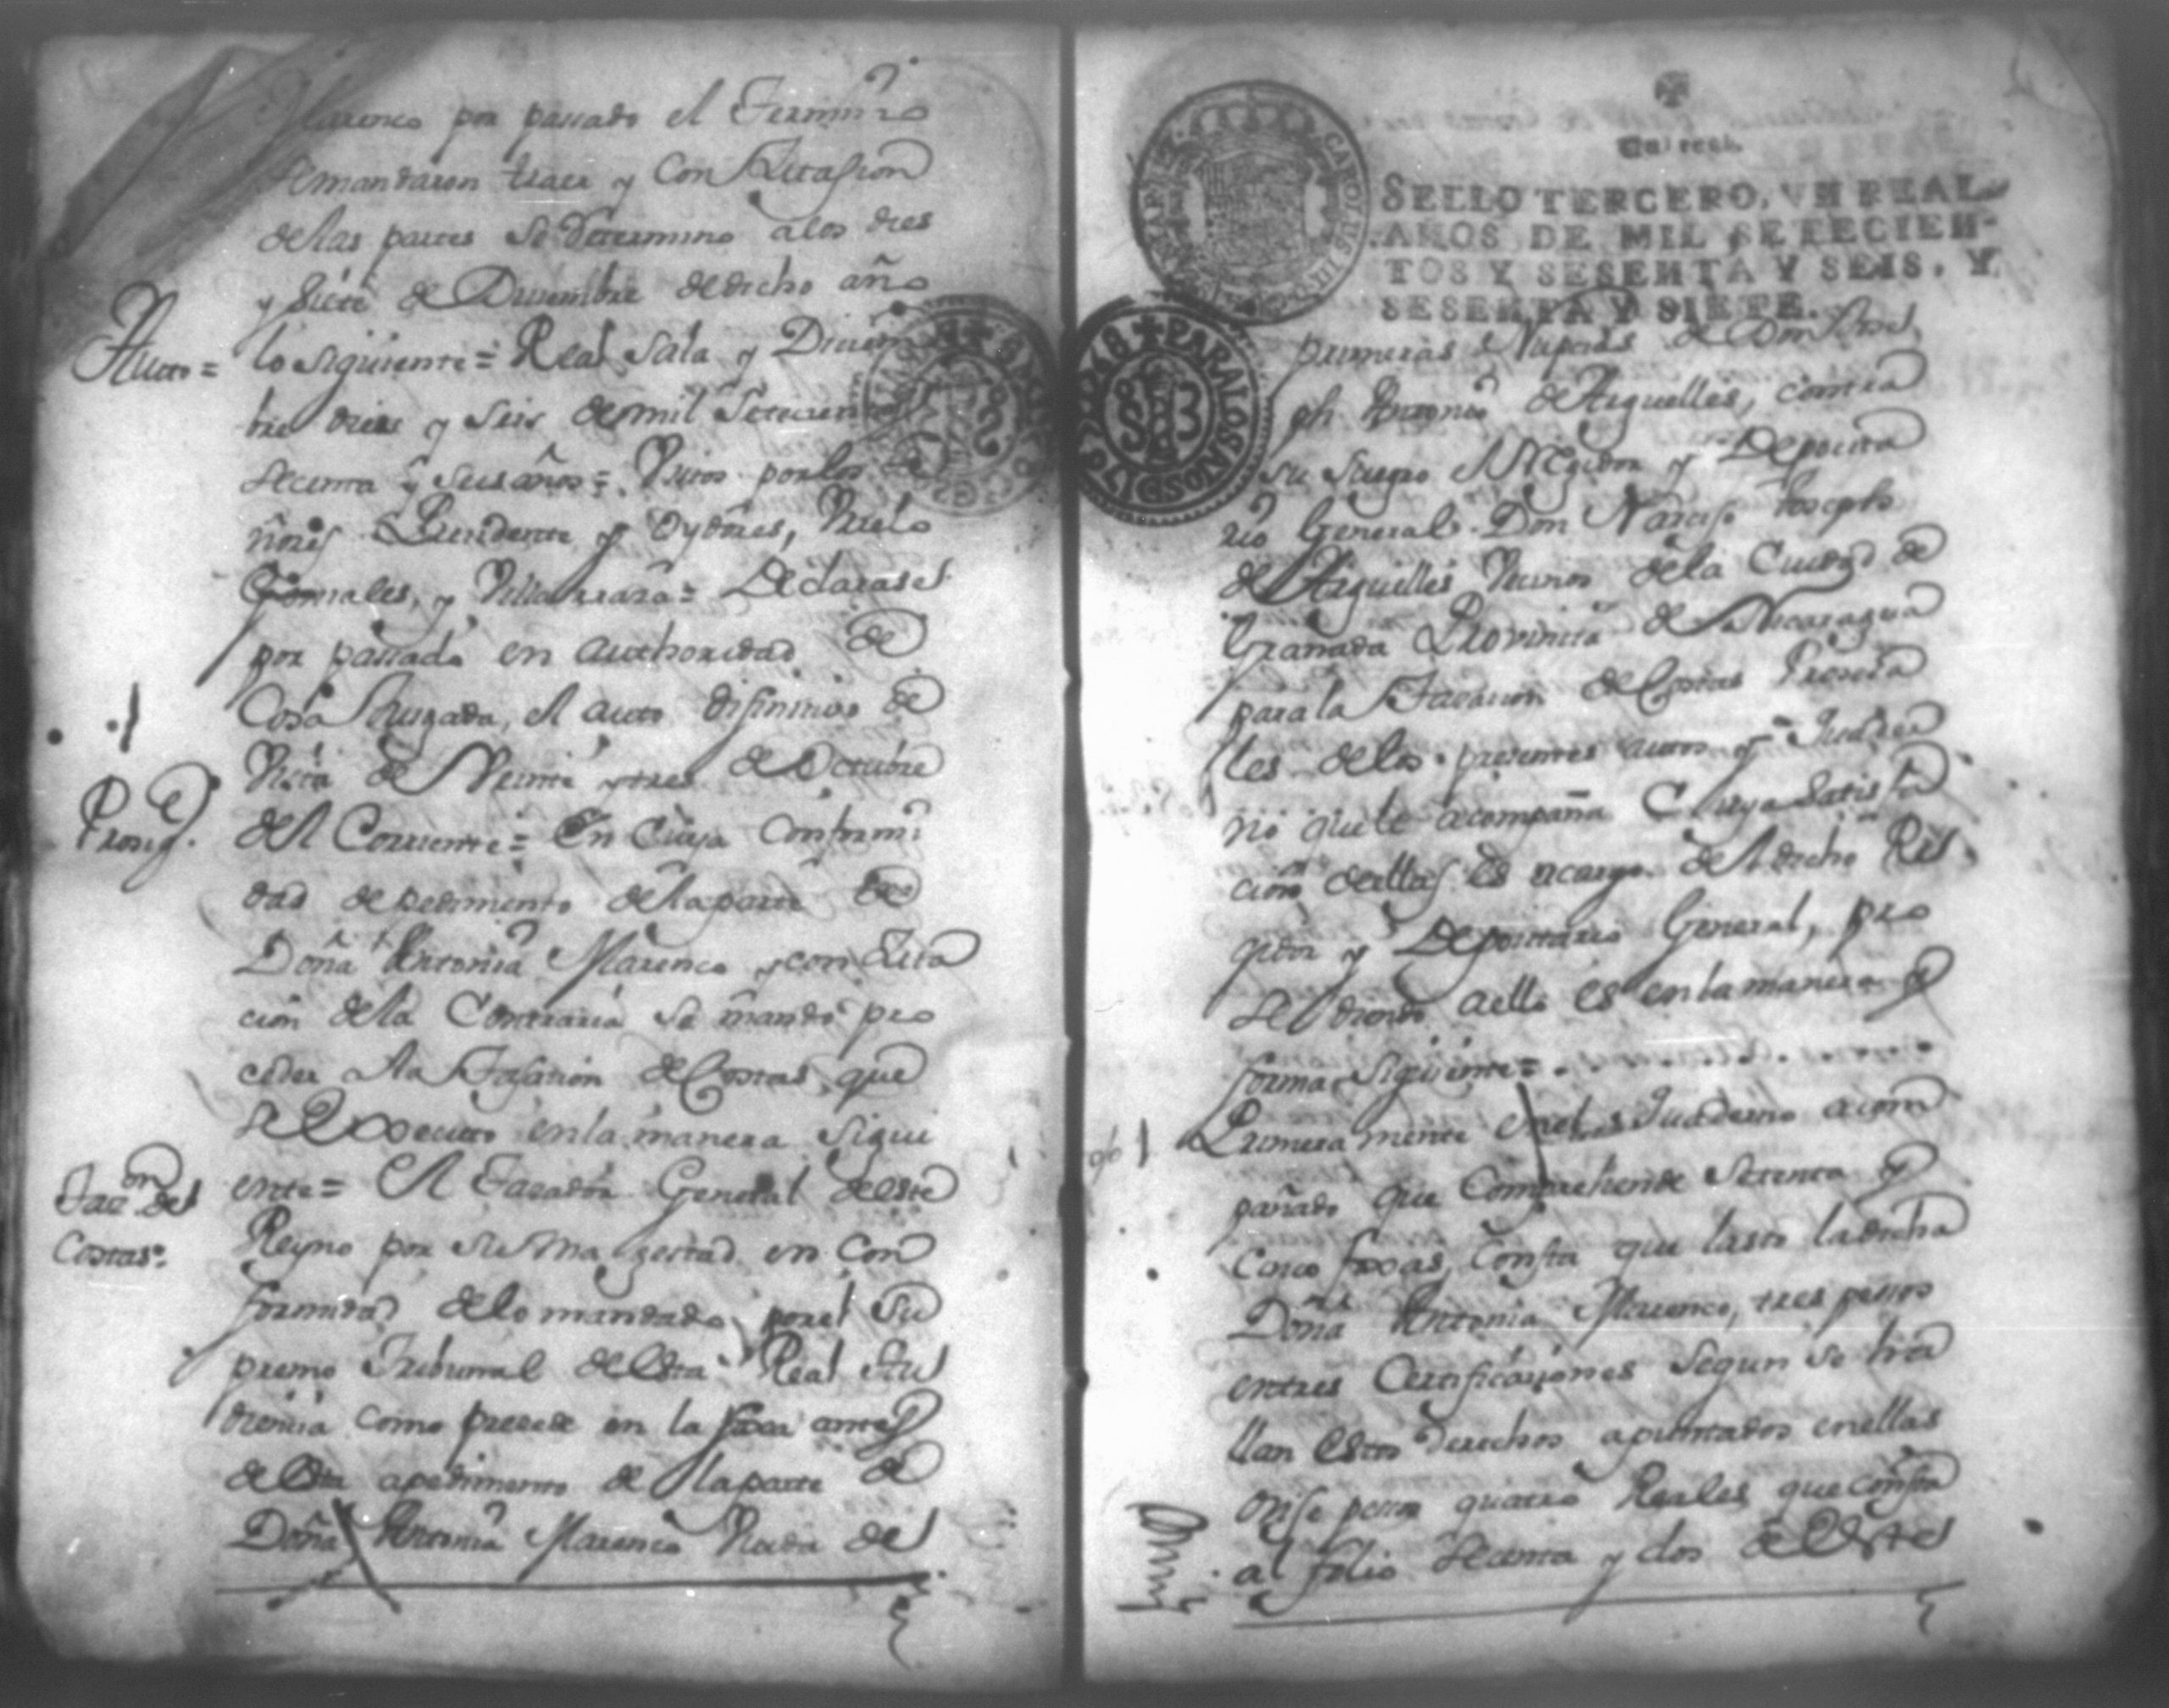 Marenco por passado el Termino
se mandaron traer y Con Zitasion
de las partes se Determino a los dies
y Siete de Disiembre de dicho año
Auto =
lo siguiente = Real Sala y Diciem
bre dies y Seis de mil Setecientos
secenta y seis años = Vistos por los Se
ñores Precidente y Oydores,
Gonzales, y Villarrasa = Declarase
por passado en authoridad de
Cosa Jusgada, el auto difinitivo de
Vista de Veinte y tres de Octubre
Prosig.
del Corriente = En Cuya Conformi
dad de pedimento de la parte de
Doña Antonia Marenco y con Zita
cion de la Contraria se mandó pro
ceder a la Tasacion de Costas que
se Exsecuto en la manera sigui
Tac.on de
Costas.
ente = El Tasador General de este
Reyno por su Magestad en Con
formidad de lo mandado por el Su
premo Tribunal de Esta Real Au
diencia como precede en la foxa antes
de Esta a pedimento de la parte de
Doña Antonia Marenco Viuda de
Un real.
SELLO TERCERO, VN REAL
AÑOS DE MIL SETECIEN-
TOS Y SESENTA Y SEIS, Y
SESENTA Y SIETE.
CAROLUS III
PARA LOS AÑOS D 1767 Y 68
primeras Nupcias de Don Jos
ph Antonio de Arguelles, contra
su Suegro el Regidor y Deposita
rio General Don Narciso Joseph
de Arguelles Vecinos de la Ciudad de
Granada Provincia de Nicaragua
para la Tasacion de Costas Prosesa
les de los presentes autos y Quader
no que le acompaña Cuya Satisfa
cion de ellas es a cargo del dicho Re
gidor y Depocitario General, pro
sediendo a ello es en la manera y
forma Siguiente =
Primera mente en el Quaderno acom
pañado que Comprehende Setenta y
Cinco foxas, Consta que lasto la dicha
Doña Antonia Marenco, tres pessos
en tres Certificaciones Segun se ha
llan estos derechos apuntados en ellas
onse pesos quatro Reales que consta
al folio Secenta y dos de Este